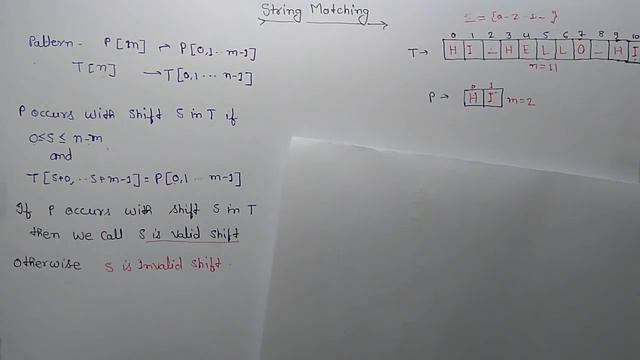 String Matching
Pattern - P[m] → P[0,1... m-1]
T[n] → T[0,1... n-1]
P occurs with shift S in T if
0≤S≤ n-m
and
T[S+0, ... S+m-1] = P[0,1 ... m-1]
If P occurs with shift S in T
then we call S is valid shift
Otherwise S is Invalid shift
Σ = {a-z 1- }
0 1 2 3 4 5 6 7 8 9 10
T → H I _ H E L L O _ H I
n=11
0 1
P → H I m=2